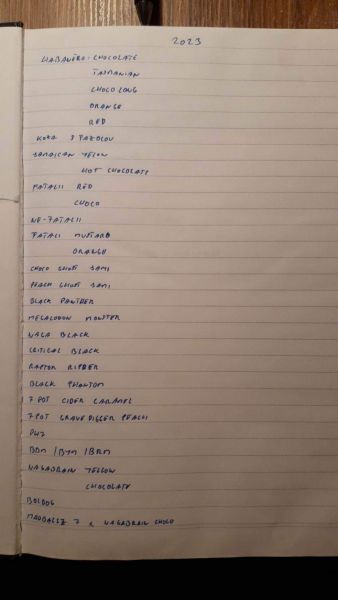 2023
HABANERO - CHOCOLATE
TASMANIAN
CHOCO LONG
ORANGE
RED
JAMAICAN YELOW
HOT CHOCOLATE
FATALII RED
CHOCO
NE-FATALII
FATALI MUSTARD
ORANGE
CHOCO GHOST JAMI
PEACH GHOST JAMI
BLACK PANTHER
MEGALODON MONSTER
NAGA BLACK
CRITICAL BLACK
RAPTOR RIPPER
BLACK PHANTOM
7 POT CIDER CARAMEL
7 POT GRAVE DIGGER PEACH
BBM / BYM / BRM
NAGABRAIN YELLOW
CHOCOLATE
NAGABRAIN CHOCO